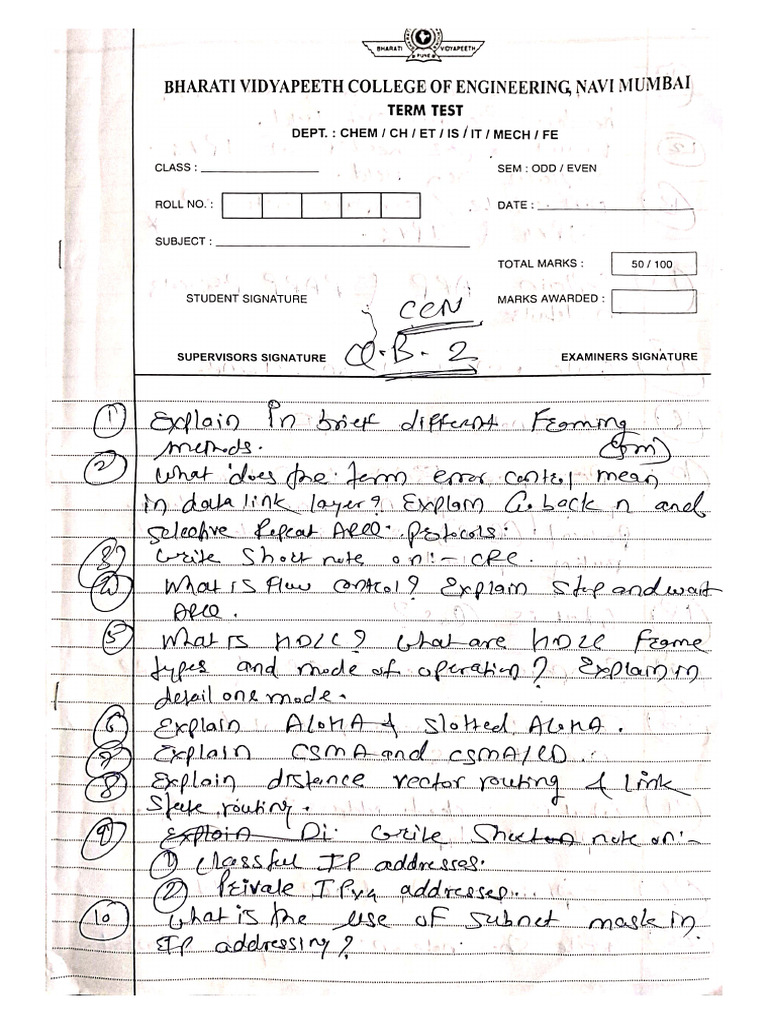 BHARATI VIDYAPEETH
PUNE
BHARATI VIDYAPEETH COLLEGE OF ENGINEERING, NAVI MUMBAI
TERM TEST
DEPT. : CHEM / CH / ET / IS / IT / MECH / FE
CLASS :
SEM : ODD / EVEN
ROLL NO. :
DATE :
SUBJECT :
TOTAL MARKS : 50 / 100
STUDENT SIGNATURE
MARKS AWARDED :
CCN
Q.B. 2
SUPERVISORS SIGNATURE
EXAMINERS SIGNATURE
1 Explain in brief different Framing
methods. (5m)
2 What does the term error control mean
in data link layer? Explain Go back n and
selective Repeat ARQ. protocols.
3 Write Short note on:- CRC.
4 What is Flow control? Explain Stop and wait
ARQ.
5 What is HDLC? What are HDLC Frame
types and mode of operation? Explain in
detail one mode.
6 Explain ALOHA & Slotted ALOHA.
7 Explain CSMA and CSMA/CD.
8 Explain distance vector routing & link
State routing.
9 Explain Di. Write Short note on:-
1 classful IP addresses.
2 Private IPv4 addresses.
10 What is the use of subnet mask in
IP addressing?